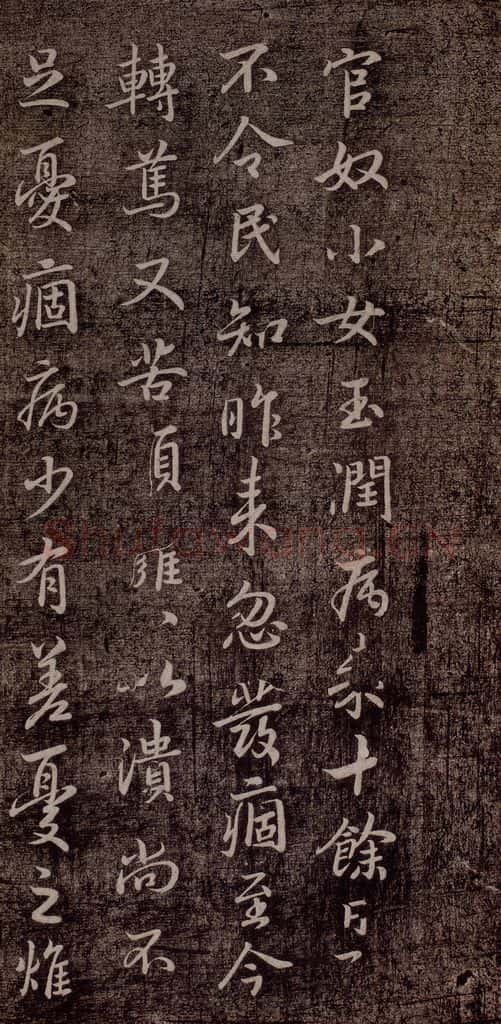 官奴小女玉潤病来十餘日了
不令民知昨来忽發痼至今
轉篤又苦頭癰、以潰尚不
足憂痼病少有差憂之燋